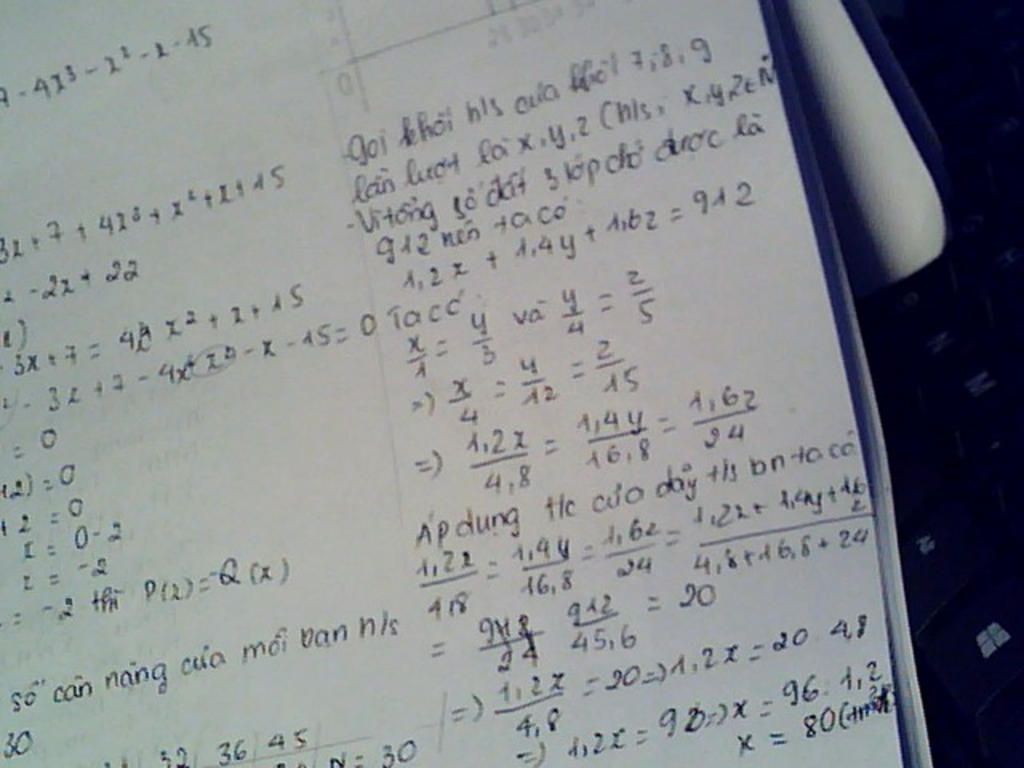 - 4x³ - x² - x - 15
3x + 7 + 4x³ + x² + x + 15
- 2x + 22
3x + 7 = 4x³ x² + x + 15
- 3x + 7 - 4x³ x² - x - 15 = 0
= 0
+2) = 0
+ 2 = 0
x = 0 - 2
x = -2
= -2 thì P(x) = Q(x)
số cân nặng của mỗi bạn h/s
30
32 | 36 | 45
N = 30
- Gọi khối h/s của khối 7, 8, 9
lần lượt là x, y, z (h/s, x, y, z ∈ N
- Vì tổng số đất 3 lớp chở được là
912 nên ta có
1,2x + 1,4y + 1,6z = 912
Ta có
x/1 = y/3 và y/4 = z/5
=) x/4 = y/12 = z/15
=) 1,2x/4,8 = 1,4y/16,8 = 1,6z/24
Áp dụng t/c của dãy t/s bn ta có
1,2x/4,8 = 1,4y/16,8 = 1,6z/24 = 1,2x + 1,4y + 1,6z/4,8 + 16,8 + 24
= 912/45,6 = 20
=) 1,2x/4,8 = 20 =) 1,2x = 20 . 4,8
=) 1,2x = 96 =) x = 96 : 1,2
x = 80